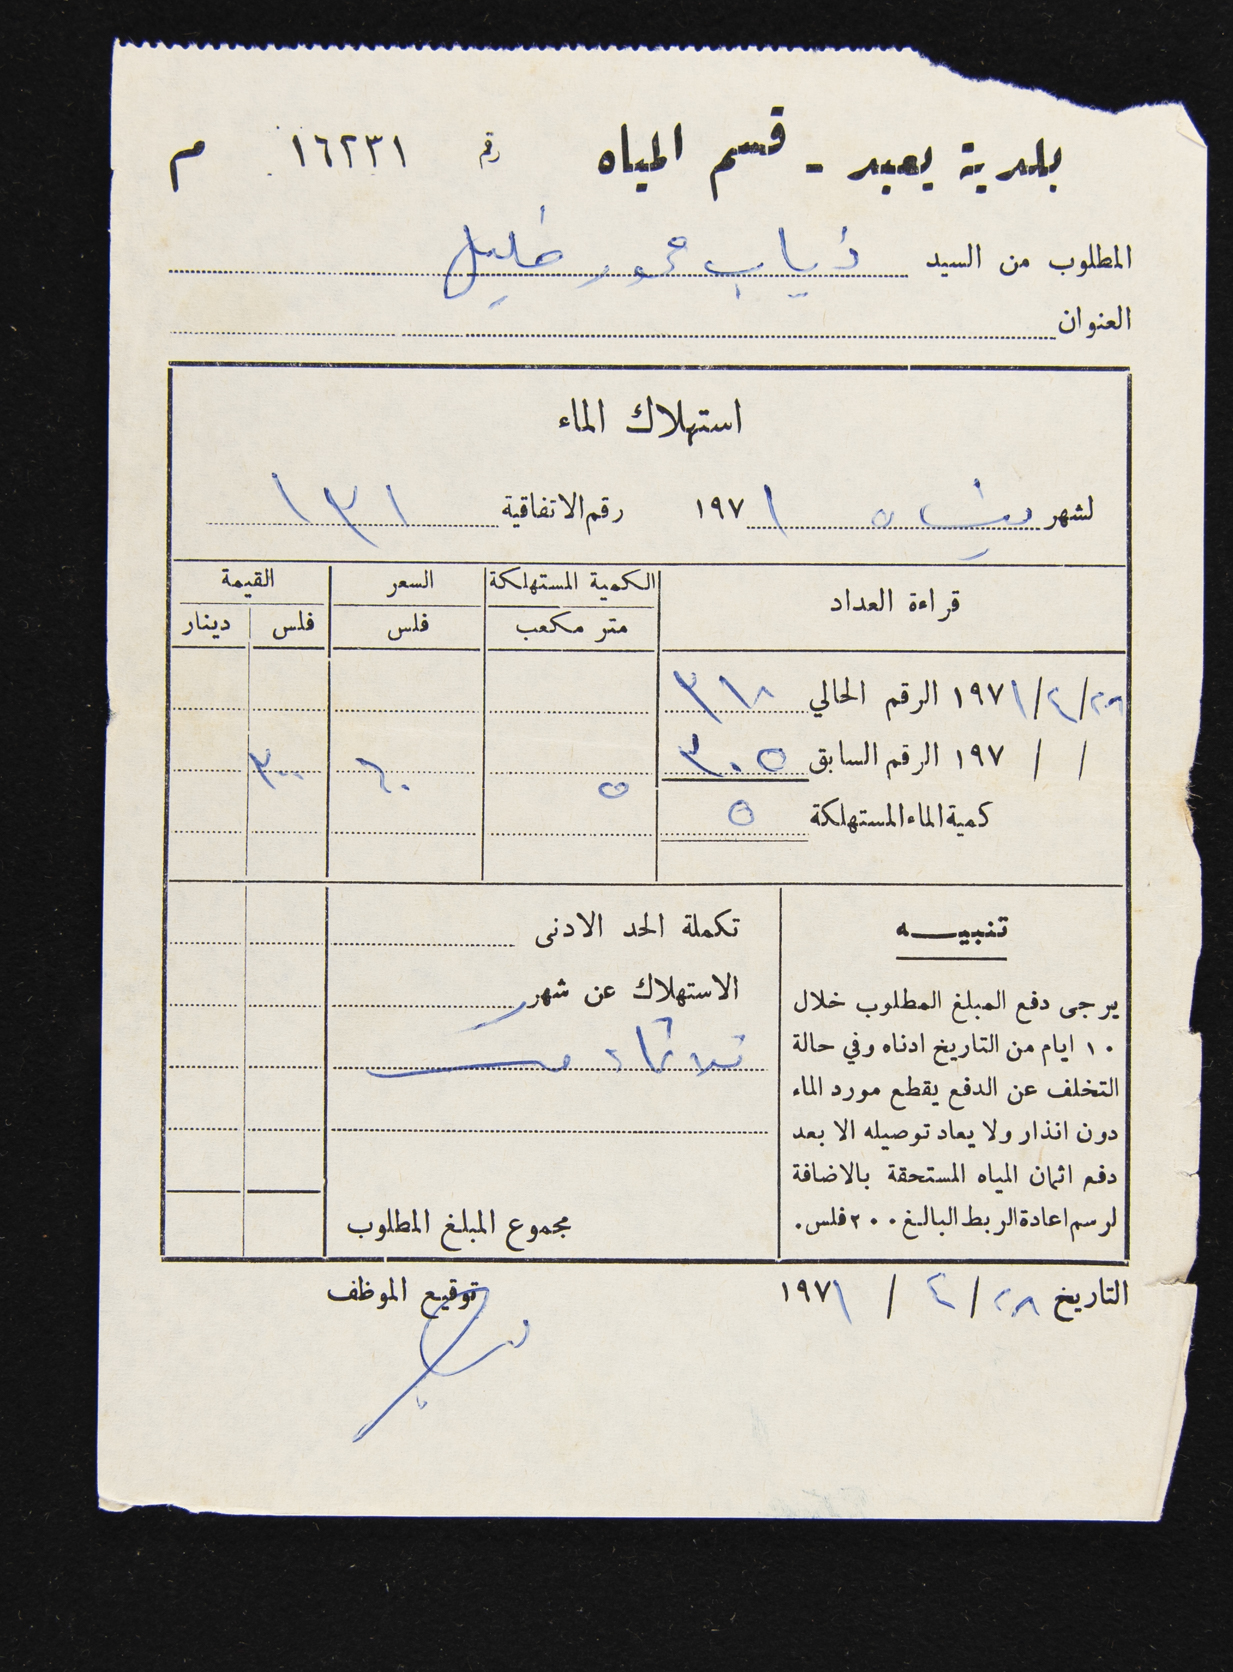 بلدية يعبد - قسم المياه رقم ١٦٢٣١ م
المطلوب من السيد ذياب محمود خليل
العنوان
استهلاك الماء
لشهر نيسان ١٩٧١ رقم الاتفاقية ١٣١
قراءة العداد الكمية المستهلكة السعر القيمة
متر مكعب فلس فلس دينار
٢٨/٤/١٩٧١ الرقم الحالي ٣١٠
/ / ١٩٧ الرقم السابق ٣٠٥
٥ ٦٠ ٣٠٠
كمية الماء المستهلكة ٥
تنبيـــه
يرجى دفع المبلغ المطلوب خلال
١٠ ايام من التاريخ ادناه وفي حالة
التخلف عن الدفع يقطع مورد الماء
دون انذار ولا يعاد توصيله الا بعد
دفع اثمان المياه المستحقة بالاضافة
لرسم اعادة الربط البالغ ٢٠٠ فلس.
تكملة الحد الادنى
الاستهلاك عن شهر
ثلاثماية فلس
مجموع المبلغ المطلوب
التاريخ ٢٨/ ٤ / ١٩٧١
توقيع الموظف